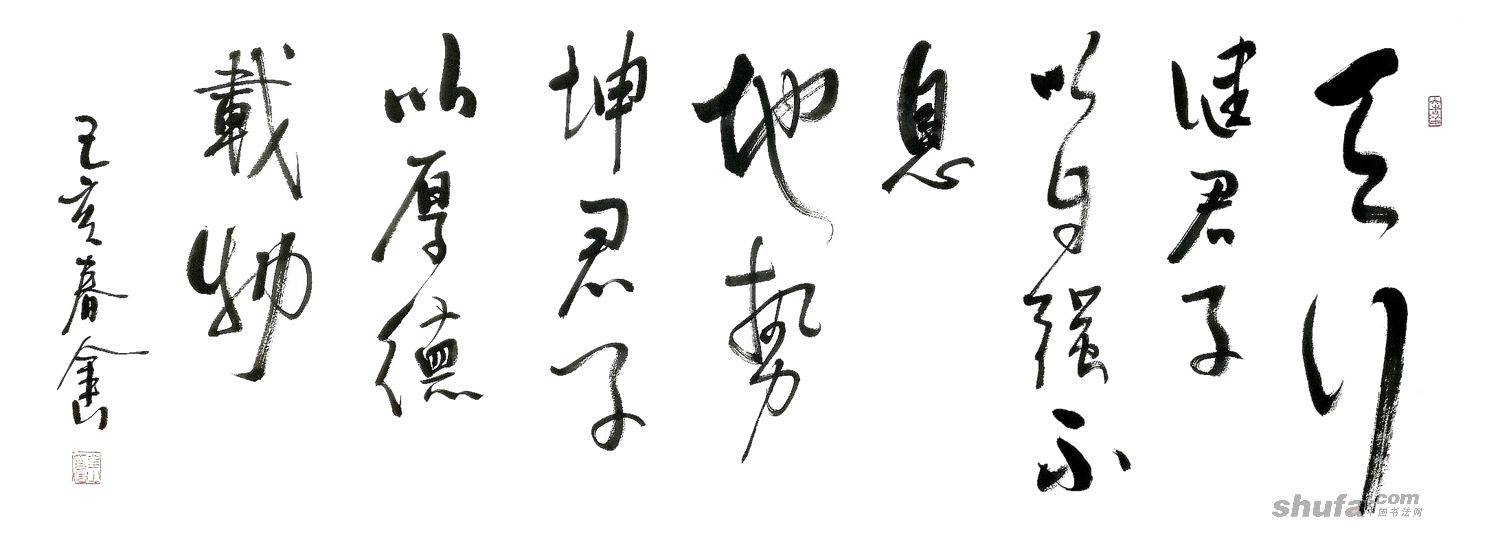 天行
健君子
以自强不
息
地势
坤君子
以厚德
載物
亥春金山
shufa.com
中国书法网